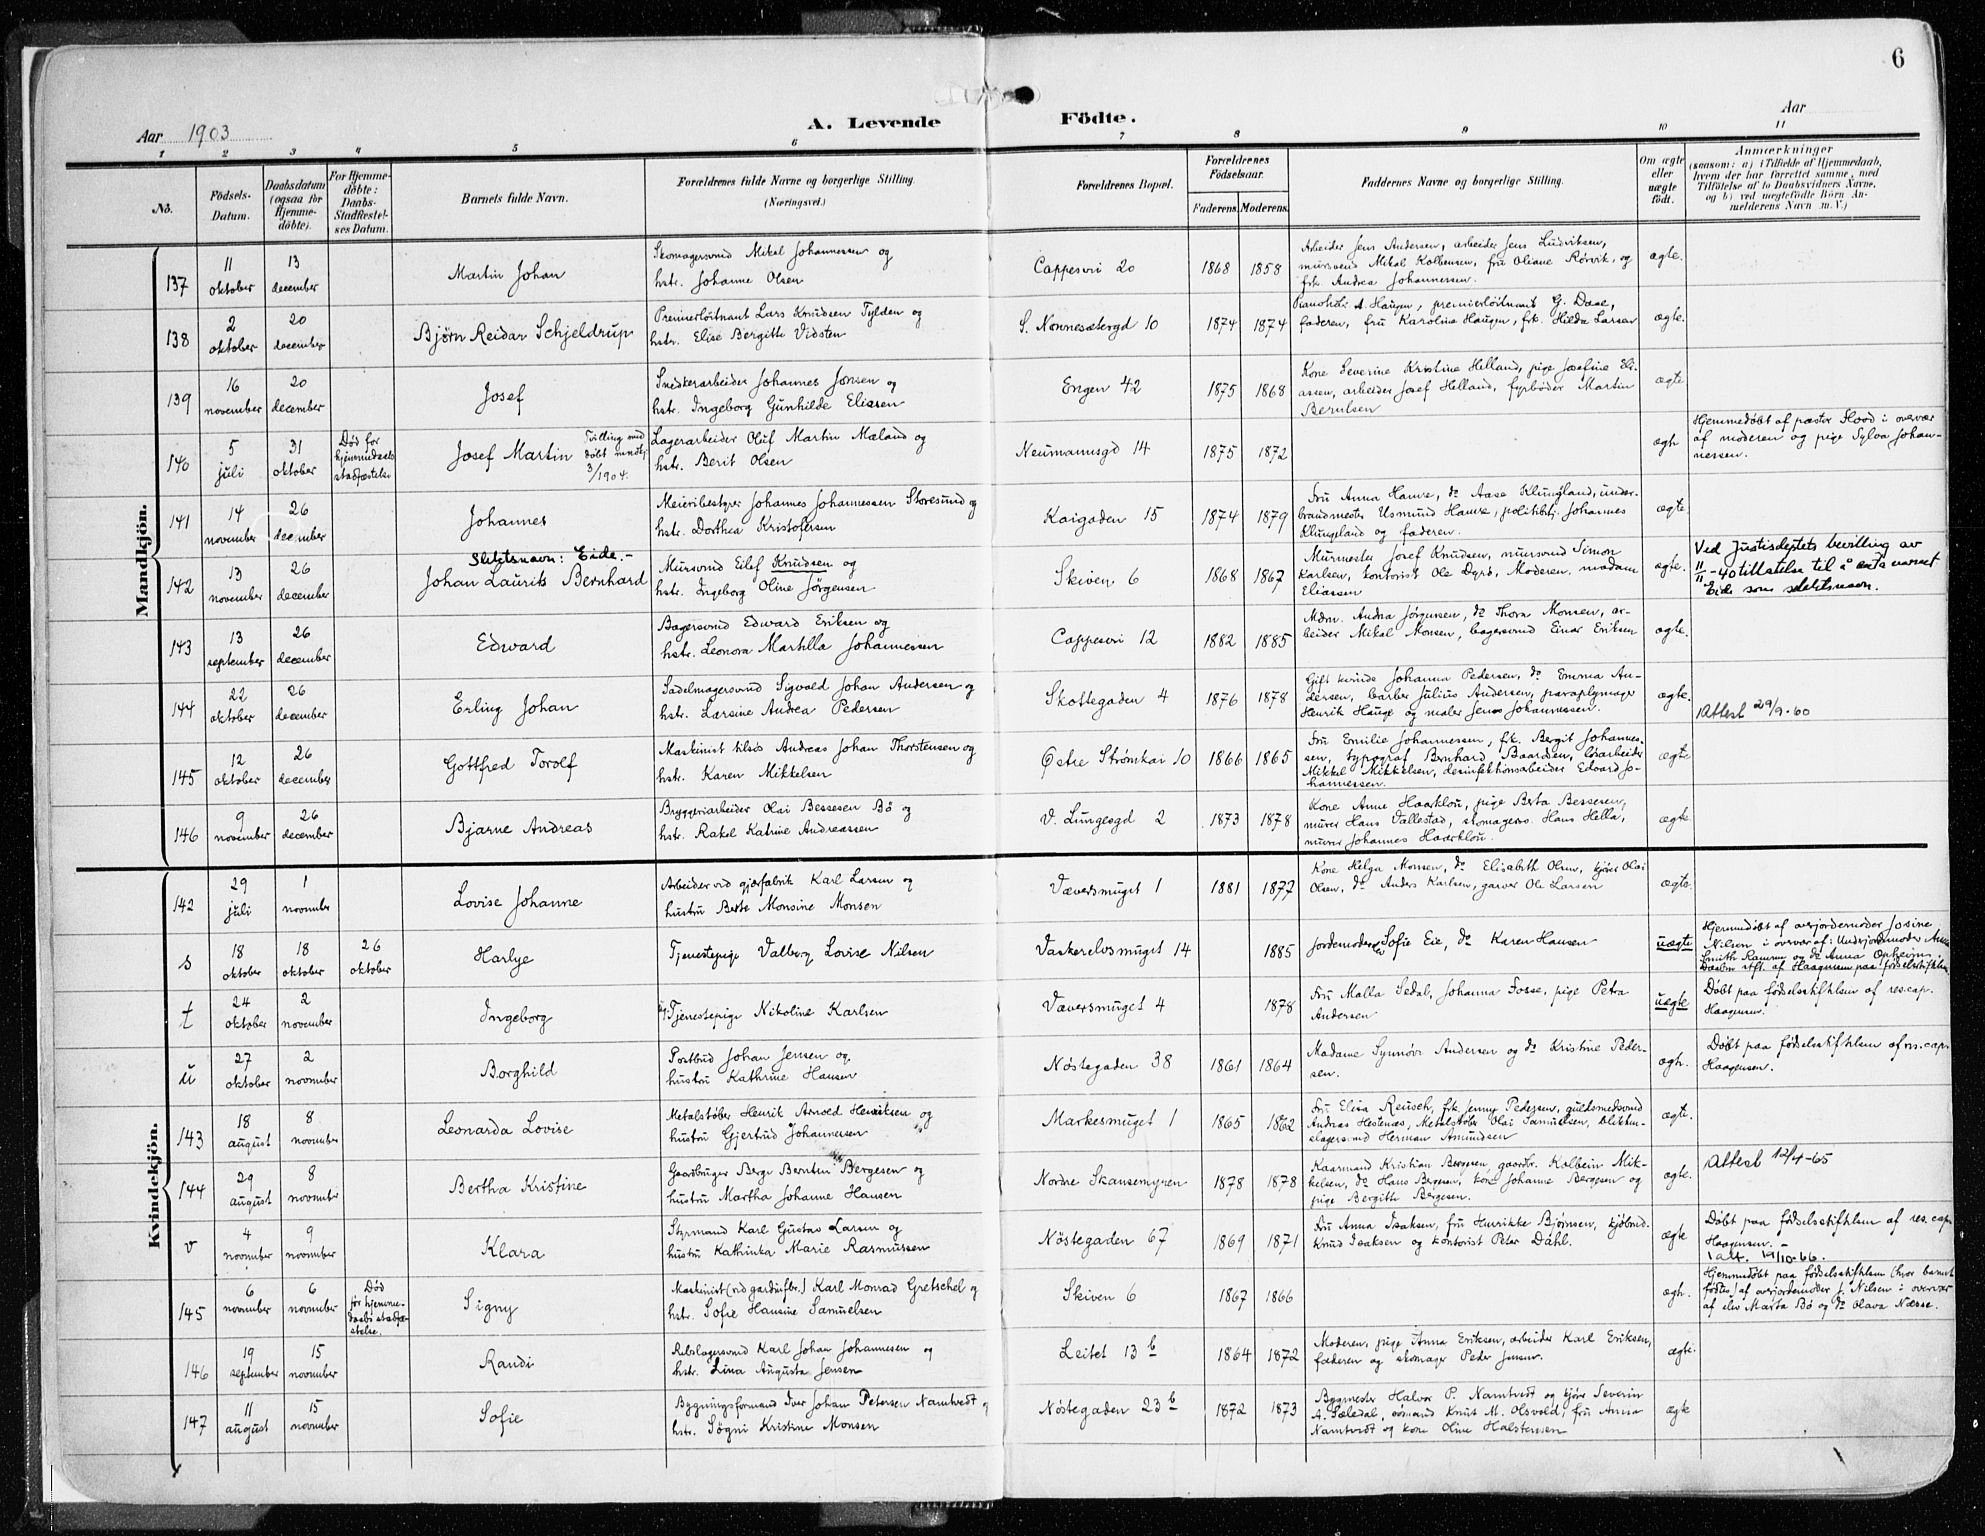 6
Aar 1903
A. Levende Födte.
Aar
1 2 3 4 5 6 7 8 9 10 11
No.
Födsels-Datum.
Daabsdatum (ogsaa for Hjemmedöbte).
For Hjemmedöbte: Daabs-Stadfæstelses Datum.
Barnets fulde Navn.
Forældrenes fulde Navne og borgerlige Stilling. (Næringsvei.)
Forældrenes Bopæl.
Forældrenes Födselsaar.
Faderens. Moderens.
Faddernes Navne og borgerlige Stilling.
Om ægte eller uægte födt.
Anmærkninger
(saasom: a) i Tilfælde af Hjemmedaab, hvem der har forrettet samme, med Tilföielse af to Daabsvidners Navne, og b) ved uægtefödte Börn Anmelderens Navn m. V.)
Mandkjön.
137 11 oktober 13 december Martin Johan Skomagersvend Mikal Johannessen og hstr. Johanne Olsen Cappesvei 20 1868 1858 Arbeider Jens Andersen, arbeider Jens Ludviksen, mursvend Mikal Kolbensen, fru Oliane Rørvik, og frk. Andrea Johannessen. ægte.
138 2 oktober 20 december Bjørn Reidar Schjeldrup Premierløitnant Lars Knudsen Tylden og hstr. Elise Bergitte Vidsten S. Nonnesætergd 10 1874 1874 A. Haugen, premierløitnant G. Daae, faderen, fru Karolina Haugen, frk. Hilda Larsen ægte.
139 16 november 20 december Josef Snedkerarbeider Johannes Jonsen og hstr. Ingeborg Gunhilde Eliasen Engen 42 1875 1868 Kone Severine Kristine Helland, pige Josefine Eliassen, arbeider Josef Helland, fyrbøder Martin Berntsen ægte
140 5 juli 31 oktober Død før hjemmedaabs stadfæstelse Josef Martin Tvilling med døbt 3/1904. Lagerarbeider Oluf Martin Mæland og hstr. Berit Olsen Neumannsgd 14 1875 1872 ægte Hjemmedøbt af pastor Hood i overvær af moderen og pige Sylva Johannessen.
141 14 november 26 december Johannes Meieribestyrer Johannes Johannessen Storesund og hstr. Dorthea Kristofersen Kaigaden 15 1874 1879 Fru Anna Hamre, do Aase Klungland, underbrandmester Usmund Hamre, politibtj. Johannes Klungeland og faderen. ægte.
142 13 november 26 december Slektsnavn: Eide.- Johan Laurits Bernhard Mursvend Eilef Knudsen og hstr. Ingeborg Oline Jørgensen Skiven 6 1868 1867 Murmester Josef Knudsen, mursvend Simon Karlsen, kontorist Ole Dyrø, Moderen, madam Eliassen ægte. Ved Justisdeptets bevilling av 11/11-40 tillatelse til å anta navnet Eide som slektsnavn.
143 13 september 26 december Edward Bagersvend Edward Eriksen og hstr. Leonora Martilla Johannessen Cappesvei 12 1882 1885 Mdm. Andrea Jørgensen, do Thora Monsen, arbeider Mikal Monsen, bagersvend Einar Eriksen ægte.
144 22 oktober 26 december Erling Johan Sadelmagersvend Sigvald Johan Andersen og hstr. Larsine Andrea Pedersen Skottegaden 4 1876 1878 Gift kvinde Johanna Pedersen, do Emma Andersen, barber Julius Andersen, paraplymager Henrik Hauge og maler Jens Johannessen. ægte. Attest 29/9-60
145 12 oktober 26 december Gottfred Torolf Maskinist tilsøs Andreas Johan Thorstensen og hstr. Karen Mikkelsen Østre Strømkai 10 1866 1865 Fru Emilie Johannessen, frk. Bergit Johannessen, typograf Bernhard Baardsen, løsarbeider Mikkel Mikkelsen, desinfektionsarbeider Edvard Johannessen. ægte
146 9 november 26 december Bjarne Andreas Bryggeriarbeider Olai Bessesen Bø og hstr. Rakel Katrine Andreassen V. Lungegd 2 1873 1878 Kone Anne Haarklou, pige Berta Bessesen, murer Hans Vallestad, skomagersv. Hans Hella, murer Johannes Haarklou. ægte
Kvindekjön.
142 29 juli 1 november Lovise Johanne Arbeider ved gjærfabrik Karl Larsen og hustru Berte Monsine Monsen Væversmuget 1 1881 1877 Kone Helga Monsen, do Elisabeth Olsen, kjører Olai Olsen, do Anders Karlsen, garver Ole Larsen ægte.
s 18 oktober 18 oktober 26 oktober Harlye Tjenestepige Valborg Lovise Nilsen Vaskerelvsmuget 14 1885 Jordemoderelev Sofie Eie, do Karen Hansen uægte Hjemmedøbt af overjordemoder Josine Nilsen i overvær af: Underjordmoder Anna Smith Ramm og do Anna Opheim. Daaben stft. af Haagensen paa fødselsstiftelsen
t 24 oktober 2 november Ingeborg Tjenestepige Nikoline Karlsen Væversmuget 4 1878 Fru Malla Sedal, Johanna Fosse, pige Petra Andersen uægte Døbt paa fødselsstiftelsen af res.cap. Haagensen.
u 27 oktober 2 november Borghild Postbud Johan Jensen og hustru Kathrine Hansen Nøstegaden 38 1861 1864 Madame Synnøve Andersen og do Kristine Pedersen. ægte. Døbt paa fødselsstiftelsen af res.cap. Haagensen.
143 18 august 8 november Leonarda Lovise Metalstøber Henrik Arnold Henriksen og hustru Gjertrud Johannesen Markesmuget 1 1865 1862 Fru Elisa Reusch, frk. Jenny Pedersen, guldsmedsvend Andreas Hestenæs, Metalstøber Olai Samuelsen, Blikkenslagersvend Herman Amundsen ægte.
144 29 august 8 november Bertha Kristine Gaardbruger Berge Berntin Bergesen og hustru Martha Johanne Hansen Nordre Skansemyren 1878 1878 Kaarmand Kristian Bergesen, gaardbr. Kolbein Mikkelsen, do Hans Bergesen, kone Johanne Bergesen og pige Bergithe Bergesen. ægte. Attest 12/4-65
v 4 november 9 november Klara Styrmand Karl Gustav Larsen og hustru Kathinka Marie Rasmussen Nøstegaden 67 1869 1871 Fru Anna Isaksen, fru Henrikke Bjørnsen, kjøbmd. Knud Isaksen og kontorist Peter Dahl. ægte Døbt paa fødselsstiftelsen af res.cap. Haagensen.- 1 att. 19/10-66.
145 6 november 6 november Død før hjemmedaabs stadfæstelse. Signy Maskinist (ved gardinfbr.) Karl Monrad Gretschel og hstr. Sofie Hansine Samuelsen Skiven 6 1867 1866 ægte. Hjemmedøbt paa fødselsstiftelsen (hvor barnet fødtes) af overjordemoder J. Nilsen i overvær af elev Marta Bø og do Olava Næsse.
146 19 september 15 november Randi Rebslagersvend Karl Johan Johannesen og hstr. Lina Augusta Jensen Leitet 13 b 1864 1872 Moderen, pige Anna Eriksen, arbeider Karl Eriksen, faderen og skomager Peder Jensen. ægte.
147 11 august 15 november Sofie Bygningsformand Iver Johan Petersen Namtvedt og hstr. Søgni Kristine Monsen Nøstegaden 23 b 1872 1873 Bygmester Halvor P. Namtvedt og kjører Severin A. Sæledal, sømand Knut M. Olsvold, fru Anna Namtvedt og kone Oline Halstensen ægte